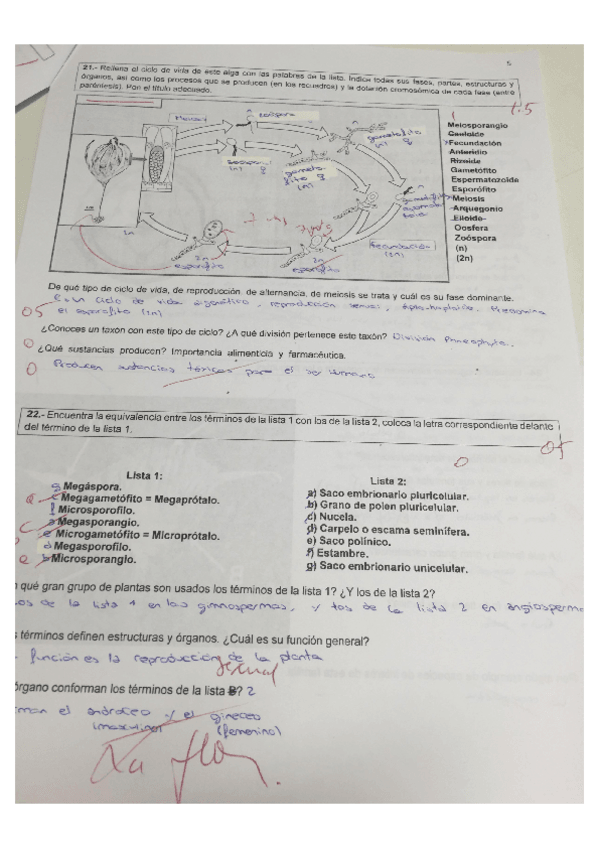 5
21.- Rellena el ciclo de vida de este alga con las palabras de la lista. Indica todas sus fases, partes, estructuras y
órganos, así como los procesos que se producen (en los recuadros) y la dotación cromosómica de cada fase (entre
paréntesis). Pon el título adecuado.
1.5
Meiosis
Meiosporangio
Cauloide
Fecundación
Anteridio
Rizoide
Gametófito
Espermatozoide
Esporófito
Meiosis
Arquegonio
Filoide
Oosfera
Zoóspora
(n)
(2n)
gametofito
(n)
(n)
gameto
fito ♀
(n)
Fecundación
(2n)
2n
2n
esporofito
2n
esporofito
De qué tipo de ciclo de vida, de reproducción, de alternancia, de meiosis se trata y cuál es su fase dominante.
Es un ciclo de vida digenético, reproducción sexual,
el esporofito (2n)
05
¿Conoces un taxón con este tipo de ciclo? ¿A qué división pertenece este taxón? División
0
¿Qué sustancias producen? Importancia alimenticia y farmacéutica.
0
Producen sustancias tóxicas para el ser humano
22.- Encuentra la equivalencia entre los términos de la lista 1 con los de la lista 2, coloca la letra correspondiente delante
del término de la lista 1.
05
0
Lista 1:
g Megáspora.
c Megagametófito = Megaprótalo.
f Microsporofilo.
a Megasporangio.
e Microgametófito = Microprótalo.
d Megasporofilo.
b Microsporangio.
Lista 2:
a) Saco embrionario pluricelular.
b) Grano de polen pluricelular.
c) Nucela.
d) Carpelo o escama seminífera.
e) Saco polínico.
f) Estambre.
g) Saco embrionario unicelular.
qué gran grupo de plantas son usados los términos de la lista 1? ¿Y los de la lista 2?
os de la lista 1 en las gimnospermas, y los de la lista 2 en angiosperma
términos definen estructuras y órganos. ¿Cuál es su función general?
función es la reproducción de la planta
sexual
órgano conforman los términos de la lista B? 2
rman el androceo y el gineceo
(masculino) (femenino)
La flor.